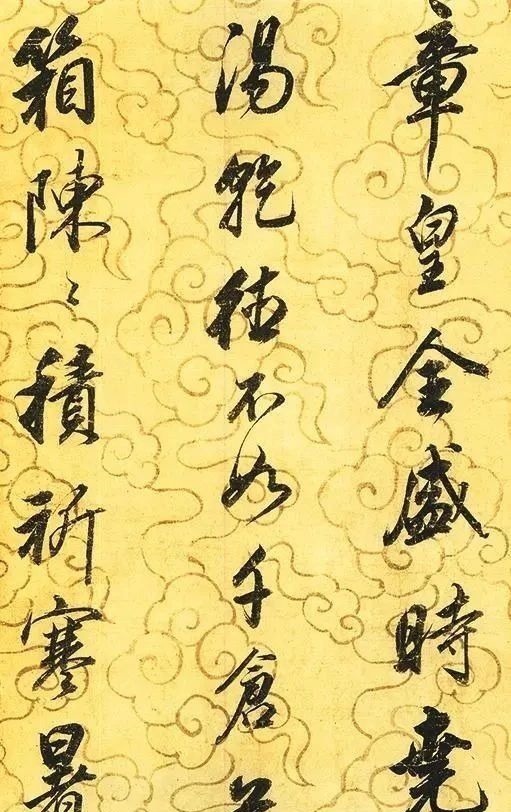 章皇全盛時堯
湯乾德不如千倉
箱陳〻積祈寒暑